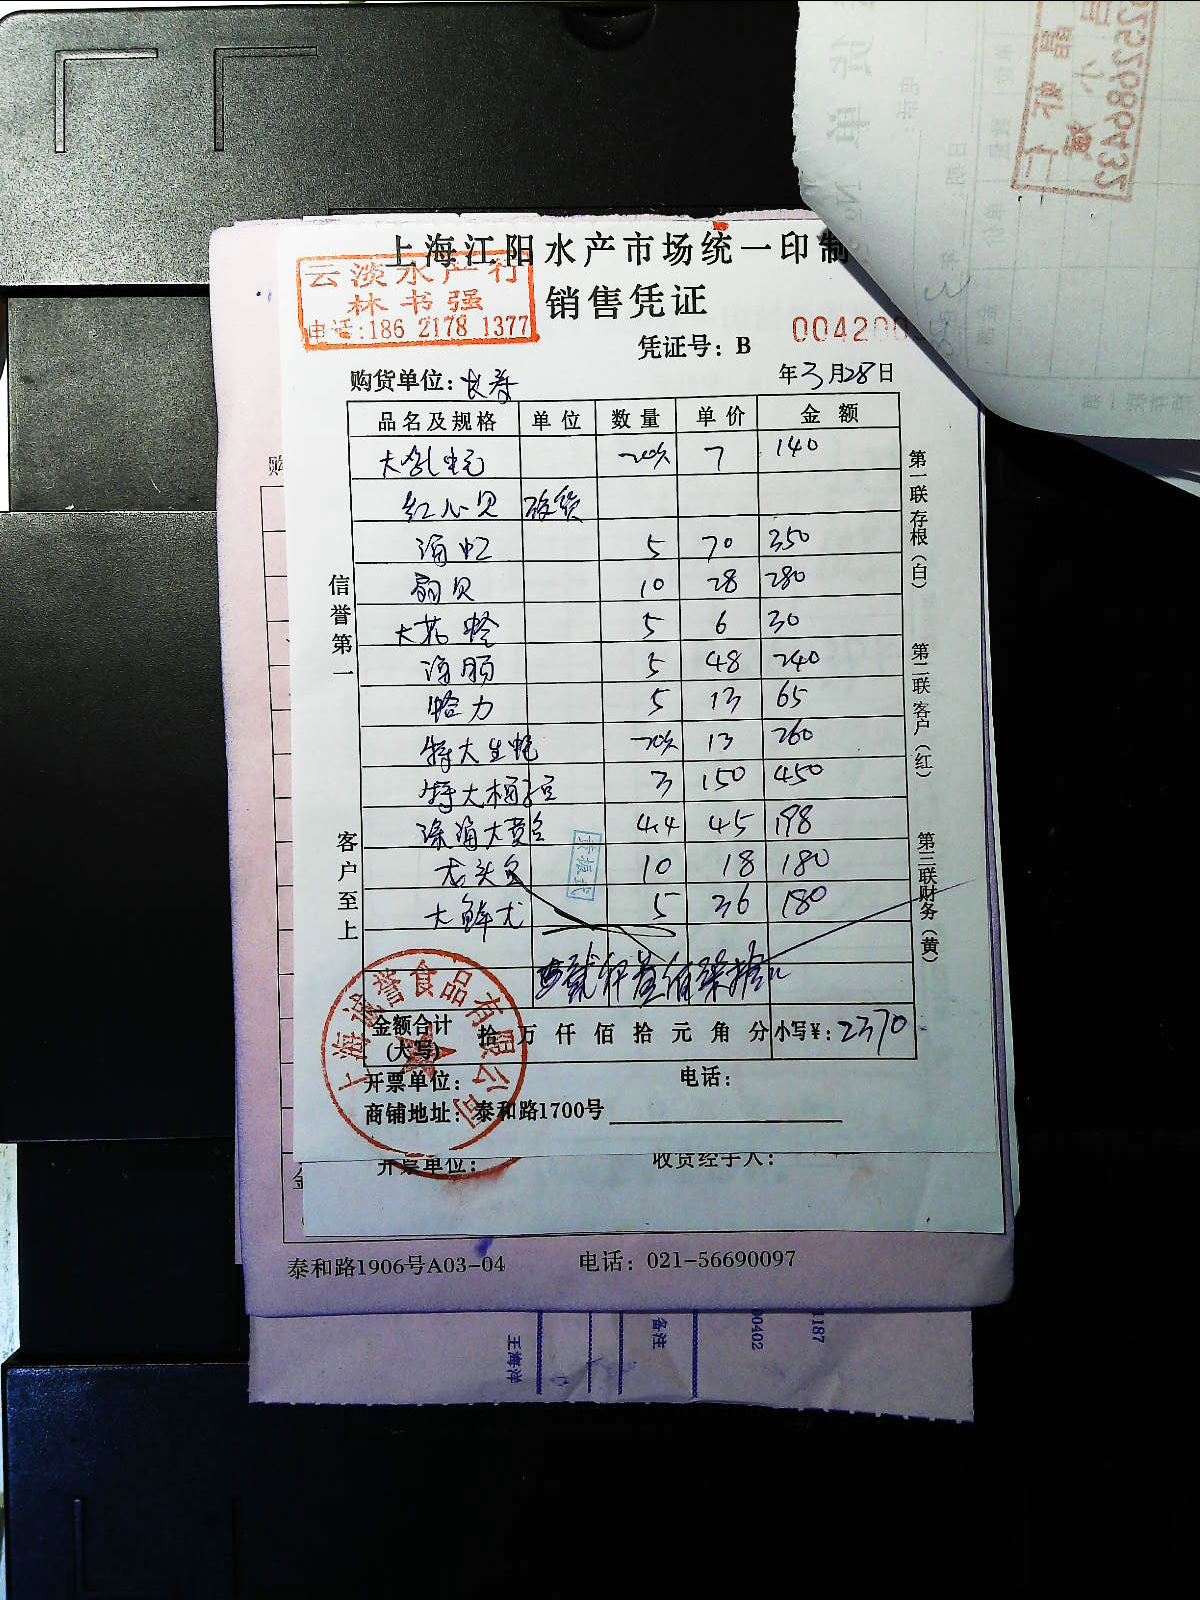 上海江阳水产市场统一印制
云淡水产行
林书强
电话:186 2178 1377
销售凭证
凭证号：B
004200
购货单位：长寿
年3月28日
品名及规格 单位 数量 单价 金额
大乳蚝 20只 7 140
红心贝 破货
海虹 5 70 350
扇贝 10 28 280
大花蛤 5 6 30
海肠 5 48 240
蛤力 5 13 65
特大生蚝 20只 13 260
特大 3 150 450
深海大黄鱼 4.4 45 198
龙头鱼 10 18 180
大鲜尤 5 36 180
金额合计(大写) 拾 万 仟 佰 拾 元 角 分 小写¥：2370
开票单位： 电话：
商铺地址：泰和路1700号
信誉第一
客户至上
第一联存根（白）
第二联客户（红）
第三联财务（黄）
上海诚誉食品有限公司
开票单位：
收货经手人：
泰和路1906号A03-04 电话：021-56690097
王海洋
备注
00402
1187